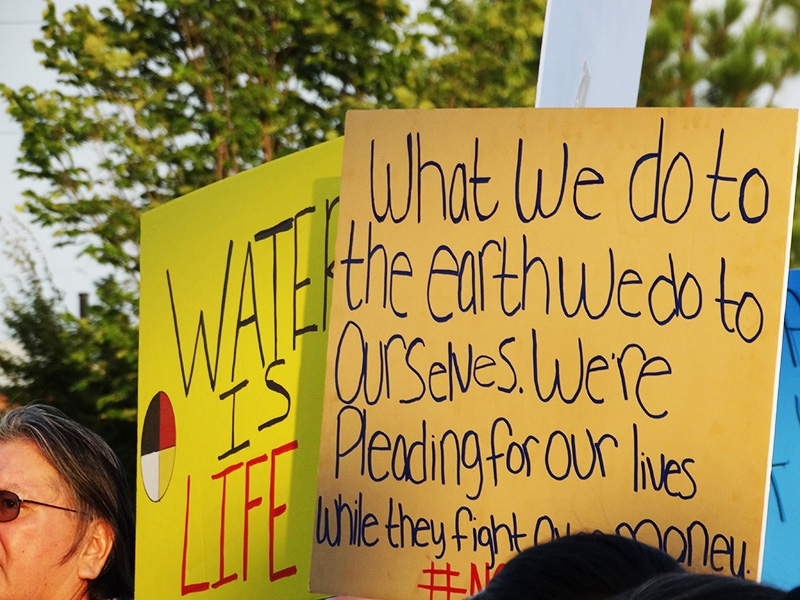 WATER
IS
LIFE
What We do to
the earth We do to
Ourselves. We're
Pleading for our lives
while they fight over money.